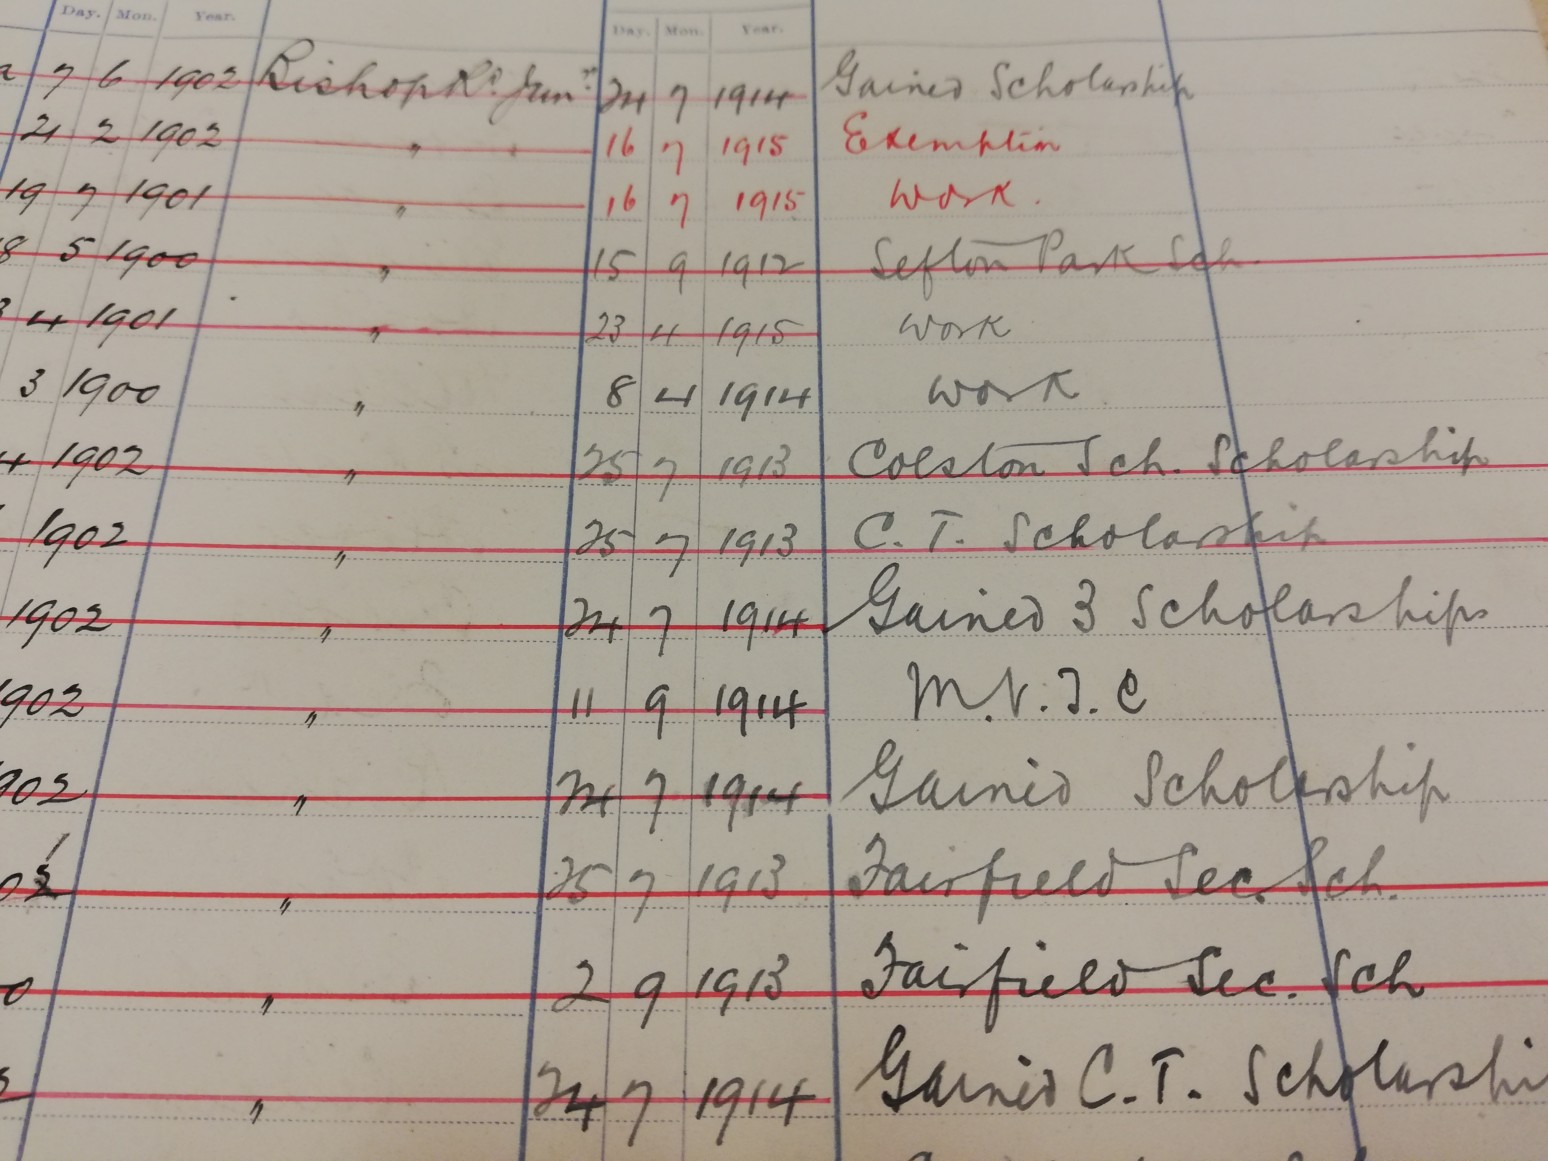 Day. Mon. Year. Day. Mon. Year.
7 6 1902 Bishop Rd. Junr. 24 7 1914 Gained Scholarship
21 2 1902 " 16 7 1915 Exemption
19 7 1901 " 16 7 1915 Work.
8 5 1900 " 15 9 1912 Sefton Park Sch.
3 4 1901 " 23 4 1915 Work
3 1900 " 8 4 1914 Work
4 1902 " 25 7 1913 Colston Sch. Scholarship
1902 " 25 7 1913 C. T. Scholarship
1902 " 24 7 1914 Gained 3 Scholarships
1902 " 11 9 1914 M.V.T.C
902 " 24 7 1914 Gained Scholarship
" 25 7 1913 Fairfield Sec. Sch.
0 " 2 9 1913 Fairfield Sec. Sch
" 24 7 1914 Gained C.T. Scholarshi